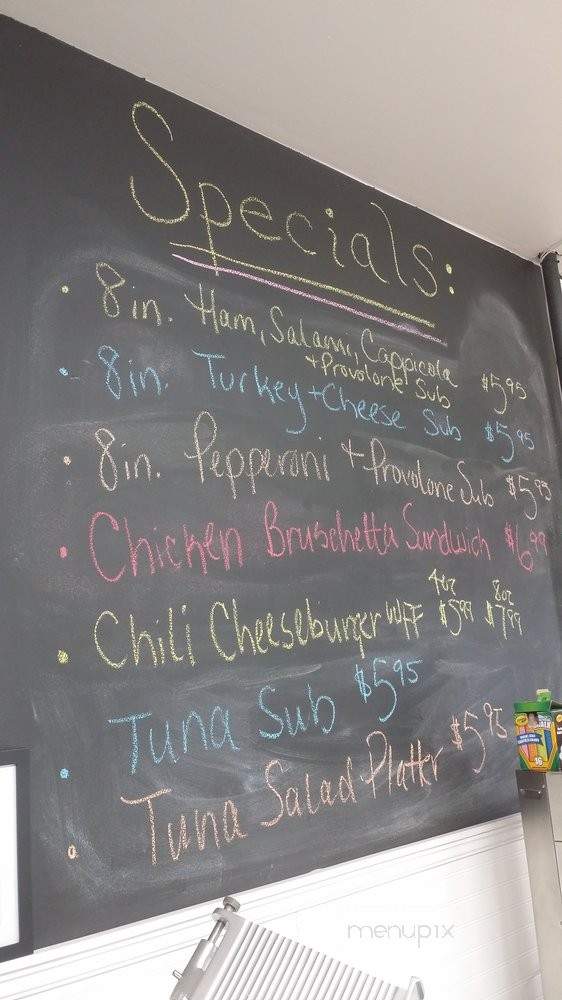 Specials:
• 8in. Ham, Salami, Cappicola
+ Provolone Sub $5.95
• 8in. Turkey + Cheese Sub $5.95
• 8in. Pepperoni + Provolone Sub $5.95
• Chicken Bruschetta Sandwich $6.99
4oz 8oz
• Chili Cheeseburger W/FF $5.99 $7.99
• Tuna Sub $5.95
• Tuna Salad Platter $5.95
menupix